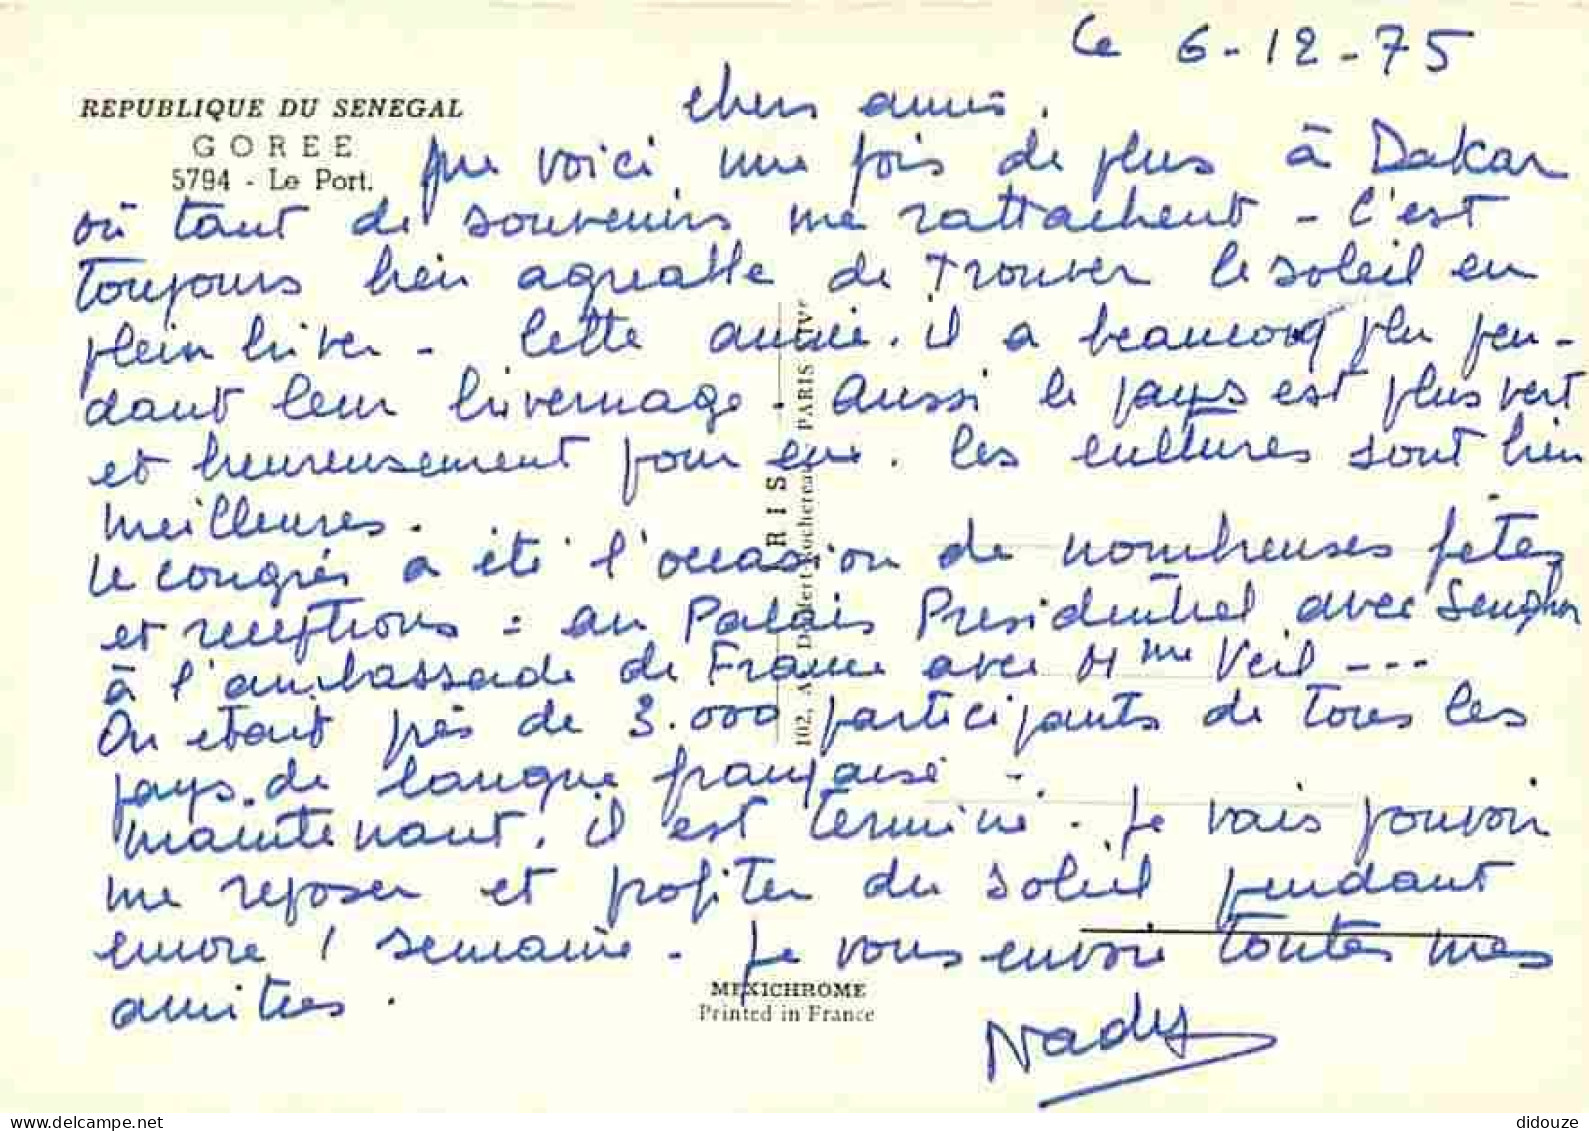 Le 6-12-75
REPUBLIQUE DU SENEGAL
GOREE
5794 - Le Port.
chers amis.
Me voici une fois de plus à Dakar
où tant de souvenirs me rattachent - C'est
toujours bien agréable de trouver le soleil en
plein hiver - Cette année. il a beaucoup plu pen-
dant leur hivernage - Aussi le pays est plus vert
et heureusement pour eux. les cultures sont bien
meilleures.
Le congrès a été l'occasion de nombreuses fêtes
et receptions : au Palais Présidentiel avec Senghor
à l'ambassade de France avec Mme Veil ---
On était près de 3.000 participants de tous les
pays de langue française -
maintenant, il est terminé. Je vais pouvoir
me reposer et profiter du soleil pendant
encore 1 semaine - Je vous envoie toutes mes
amitiés.
Nady
RIS
102, A Rochereau PARIS XIVe
MEXICHROME
Printed in France
didouze